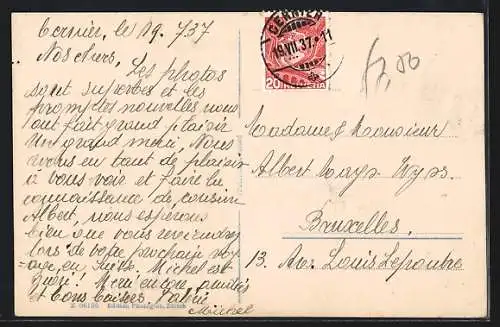 Cernier, le 19. 7 37
Nos chers,
Les photos
sont superbes et les
promptes nouvelles nous
ont fait grand plaisir
Un grand merci, Nous
avons eu tant de plaisir
à vous voir et faire la
connaissance de cousin
Albert, nous espérons
bien que vous reviendrez
lors de votre prochain voy-
age, en Suisse. Michel est
Merci encore, amitiés
et bons baisers.
Michel
CERNIER
19.VII.37.-11
20 HELVETIA
Madame & Monsieur
Albert Mays-Wyss
Bruxelles.
13. Av. Louis Lepoutre
Edition Photoglob, Zürich